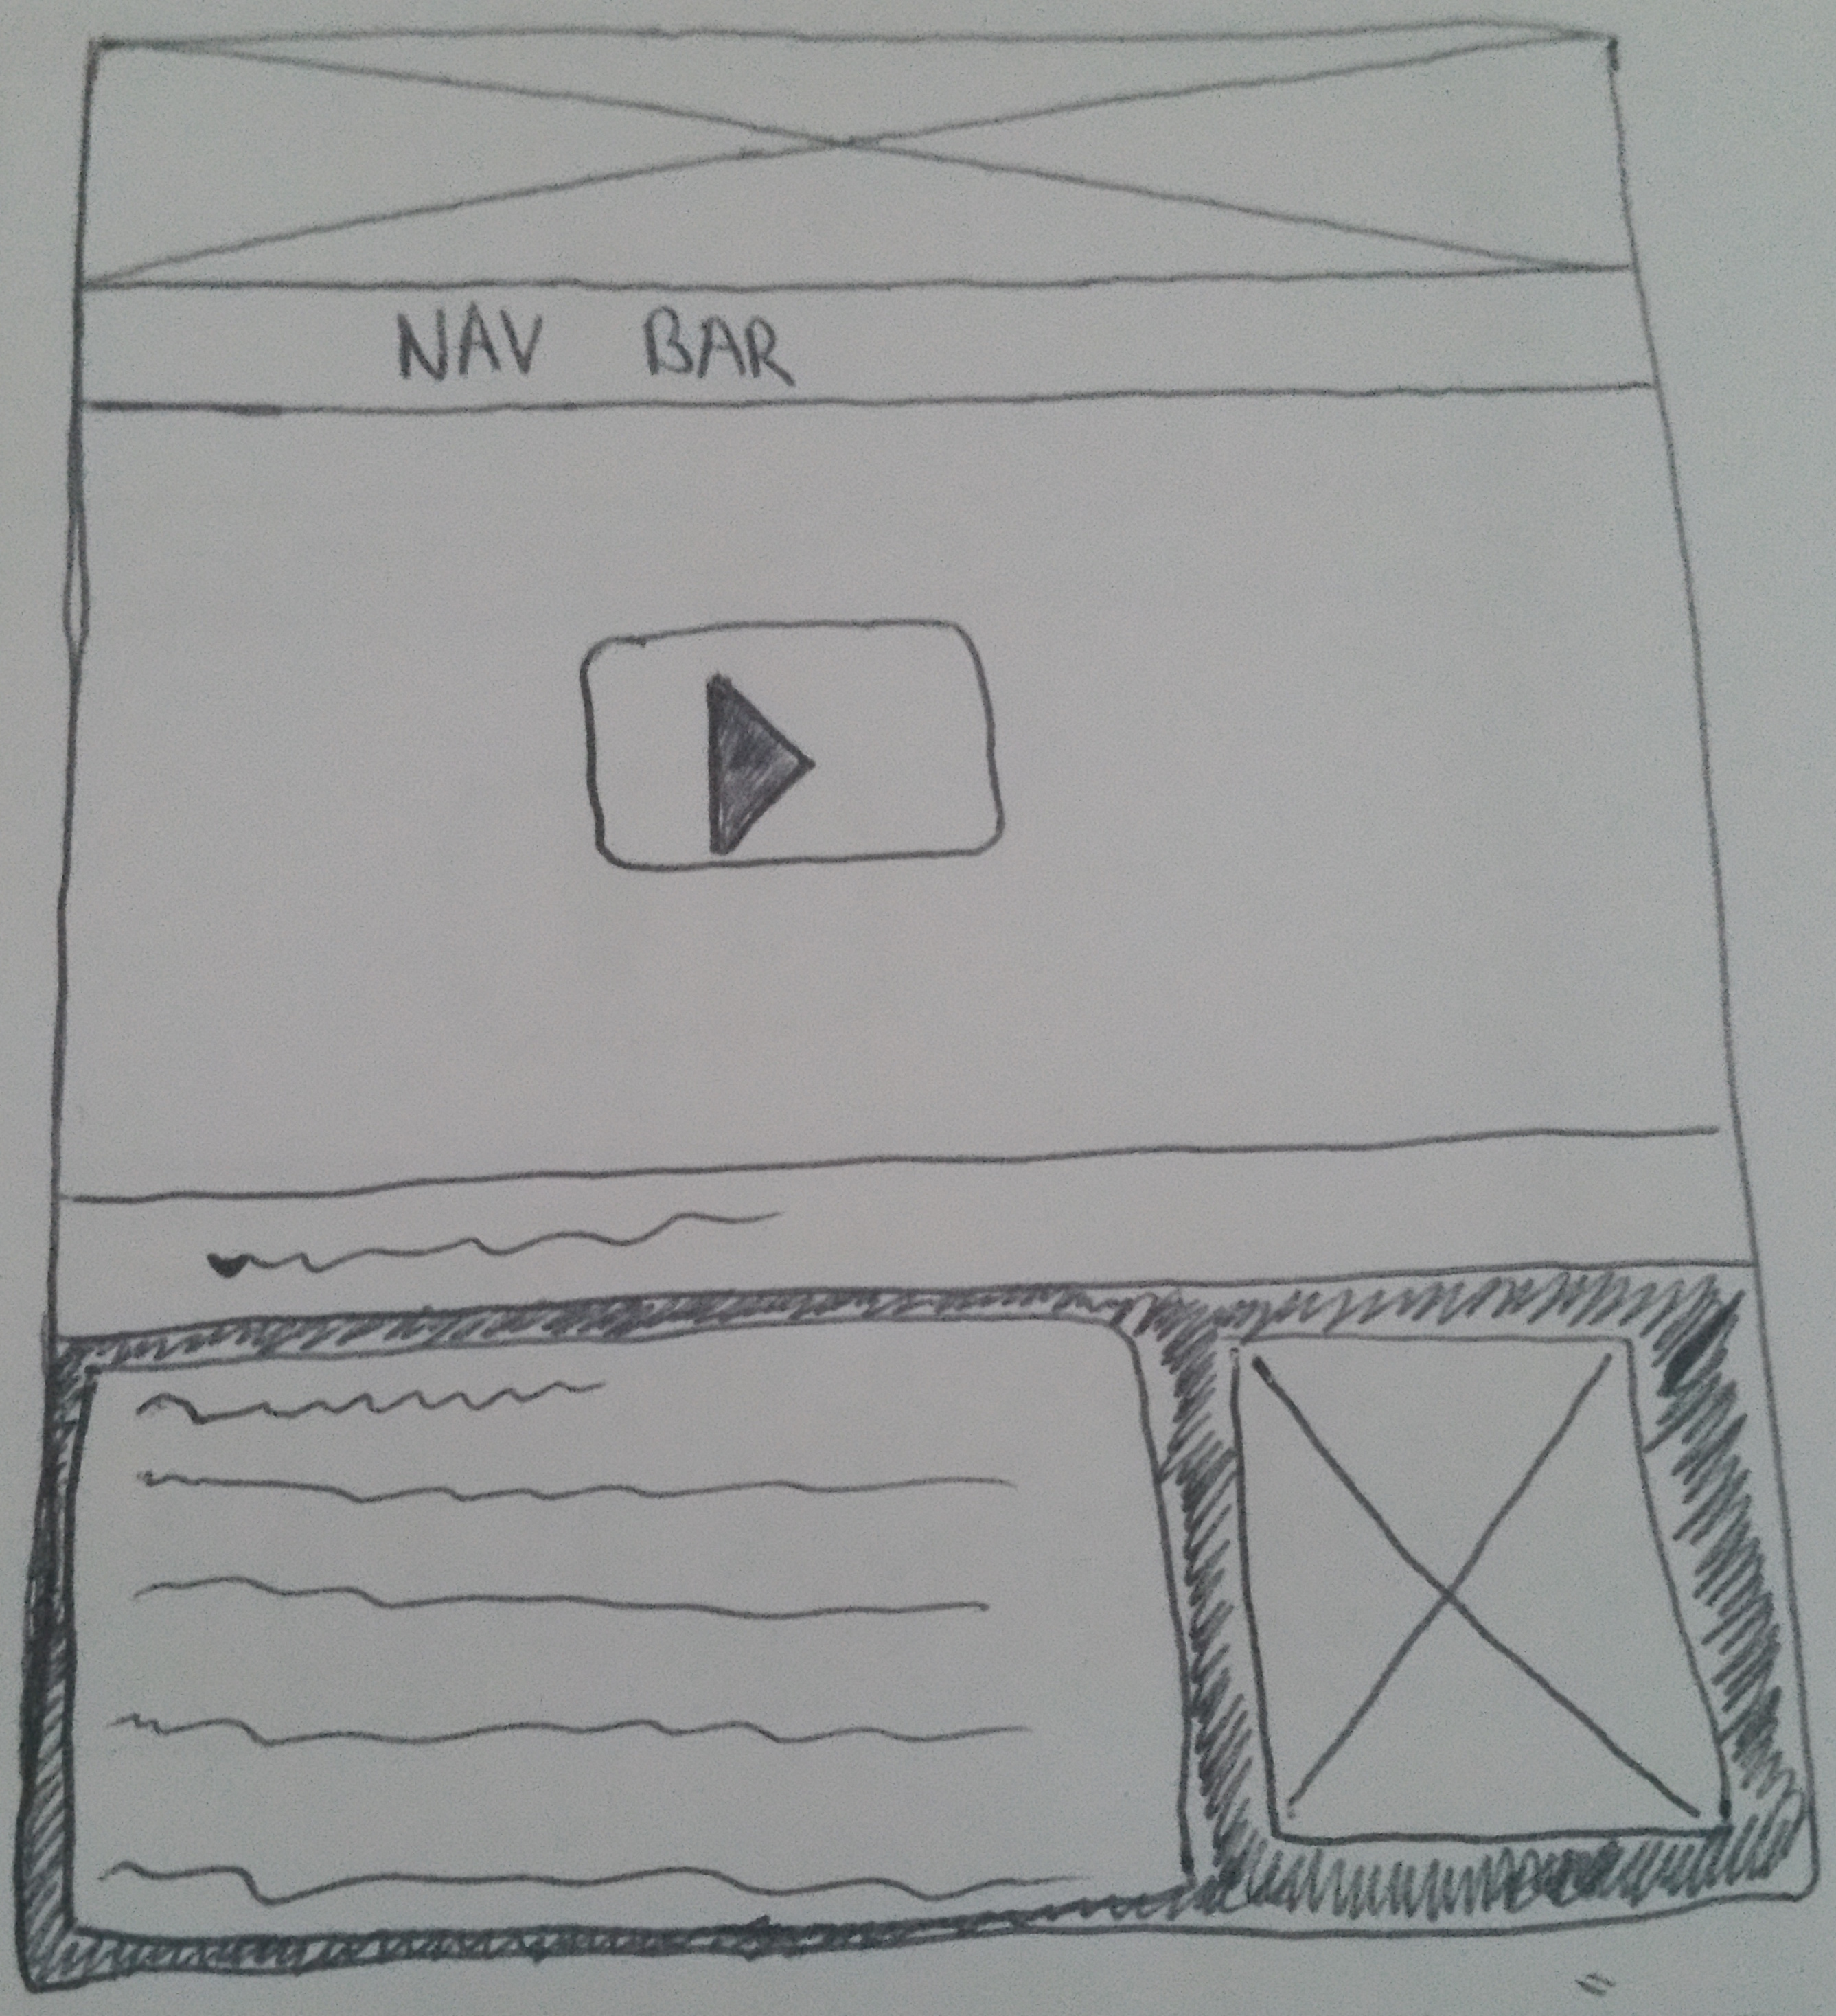 NAV BAR